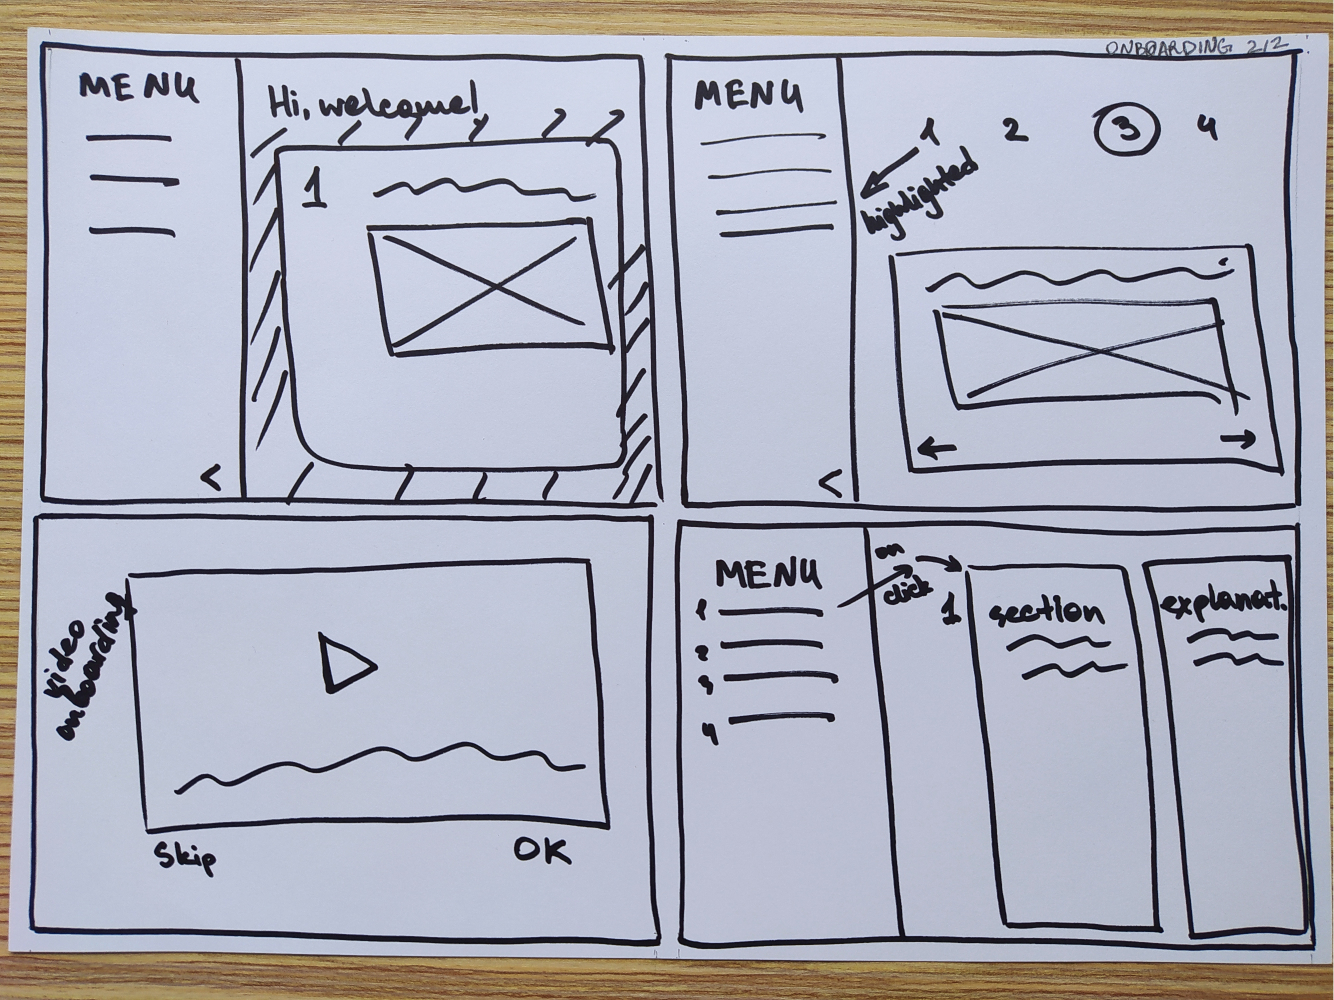 ONBOARDING 2/2
MENU
Hi, welcome!
1
<
MENU
1 2 3 4
highlighted
<
video
onboarding
Skip OK
MENU
1
2
3
4
on
click
1
section
explanat.